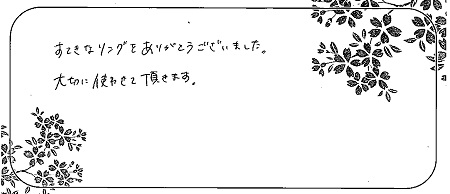 すてきなリングをありがとうございました。
大切に使わせて頂きます。